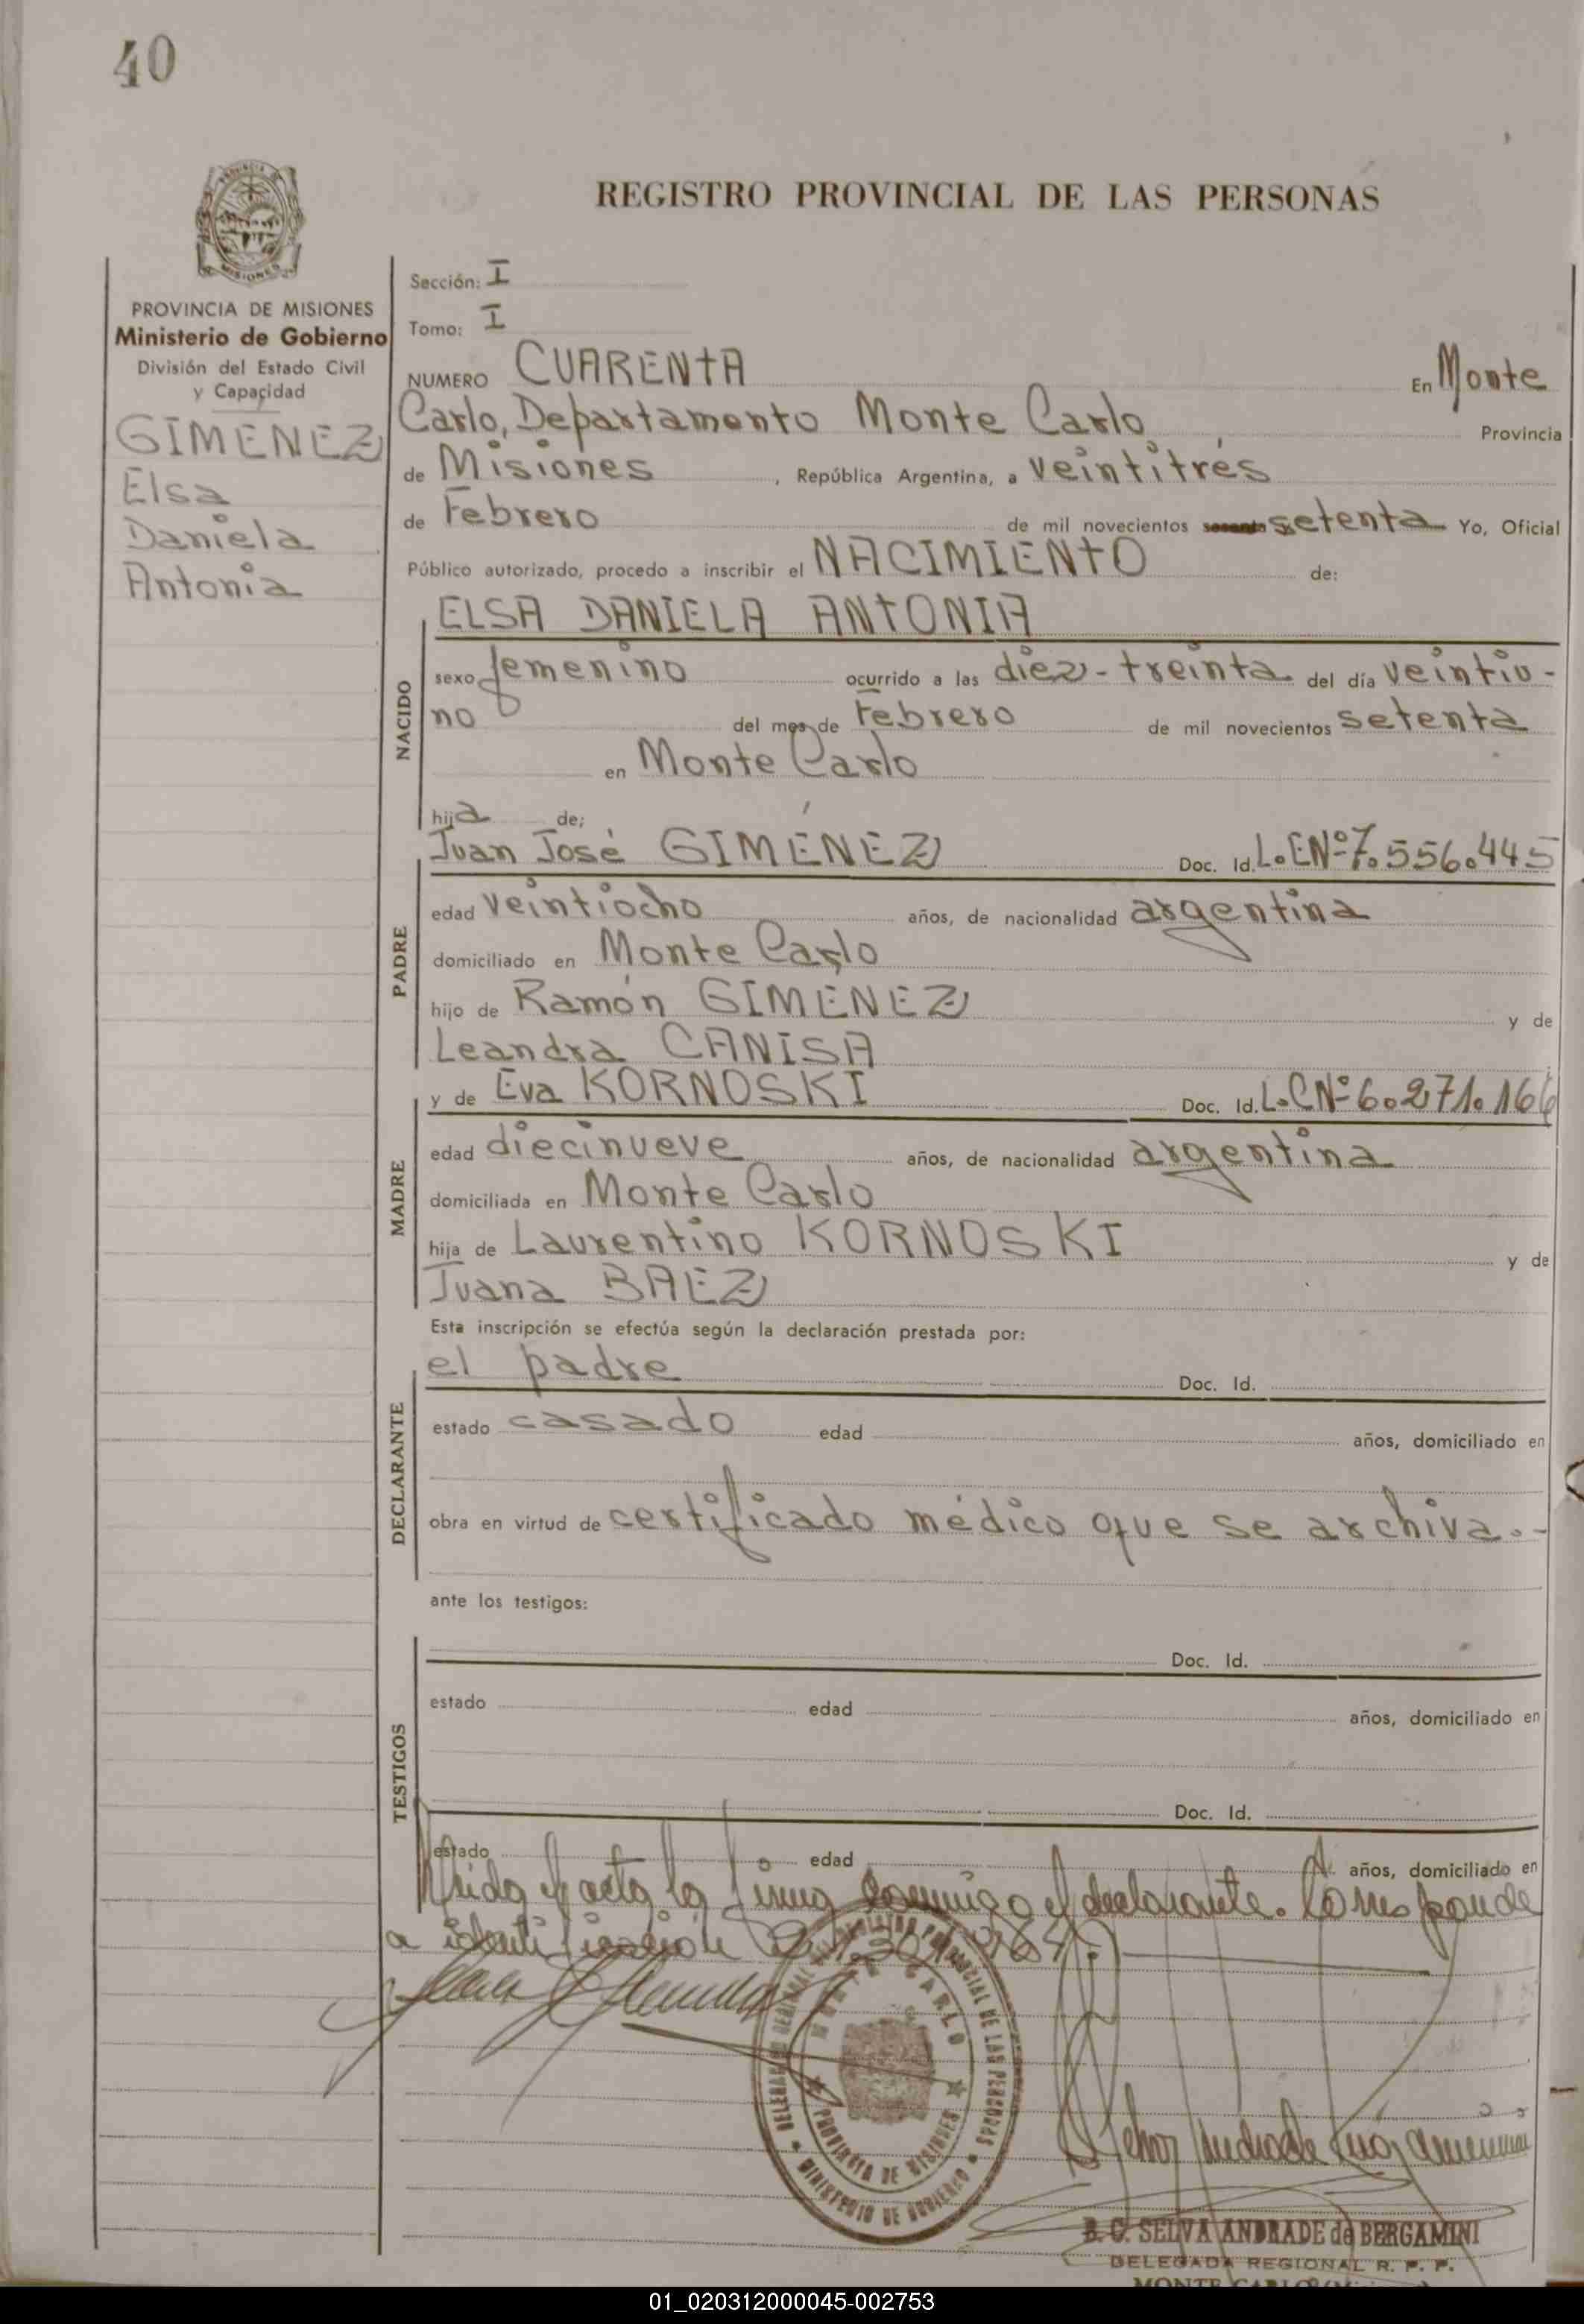 40
REGISTRO PROVINCIAL DE LAS PERSONAS
PROVINCIA DE MISIONES
Ministerio de Gobierno
División del Estado Civil
y Capacidad
GIMENEZ
Elsa
Daniela
Antonia
Sección: I
Tomo: I
NUMERO CUARENTA En Monte
Carlo, Departamento Monte Carlo, Provincia
de Misiones, República Argentina, a veintitrés
de Febrero de mil novecientos setenta Yo, Oficial
Público autorizado, procedo a inscribir el NACIMIENTO de:
NACIDO
ELSA DANIELA ANTONIA
sexo femenino ocurrido a las diez-treinta del día veintiu-
no del mes de Febrero de mil novecientos setenta
en Monte Carlo
hija de;
PADRE
Juan José GIMÉNEZ Doc. Id. L.E.Nº 7.556.445
edad veintiocho años, de nacionalidad argentina
domiciliado en Monte Carlo
hijo de Ramón GIMÉNEZ y de
Leandra CANISA
MADRE
y de Eva KORNOSKI Doc. Id. L.C.Nº 6.271.166
edad diecinueve años, de nacionalidad argentina
domiciliada en Monte Carlo
hija de Laurentino KORNOSKI y de
Juana BAEZ
Esta inscripción se efectúa según la declaración prestada por:
DECLARANTE
el padre Doc. Id.
estado casado edad años, domiciliado en
obra en virtud de certificado médico que se archiva.-
ante los testigos:
TESTIGOS
Doc. Id.
estado edad años, domiciliado en
Doc. Id.
estado edad años, domiciliado en
el acta la firma conmigo el declarante. Corresponde
a identificación
MONTE CARLO
PROVINCIA DE MISIONES
MINISTERIO DE GOBIERNO
B. C. SELVA ANDRADE de BERGAMINI
DELEGADA REGIONAL R. P. P.
01_020312000045-002753